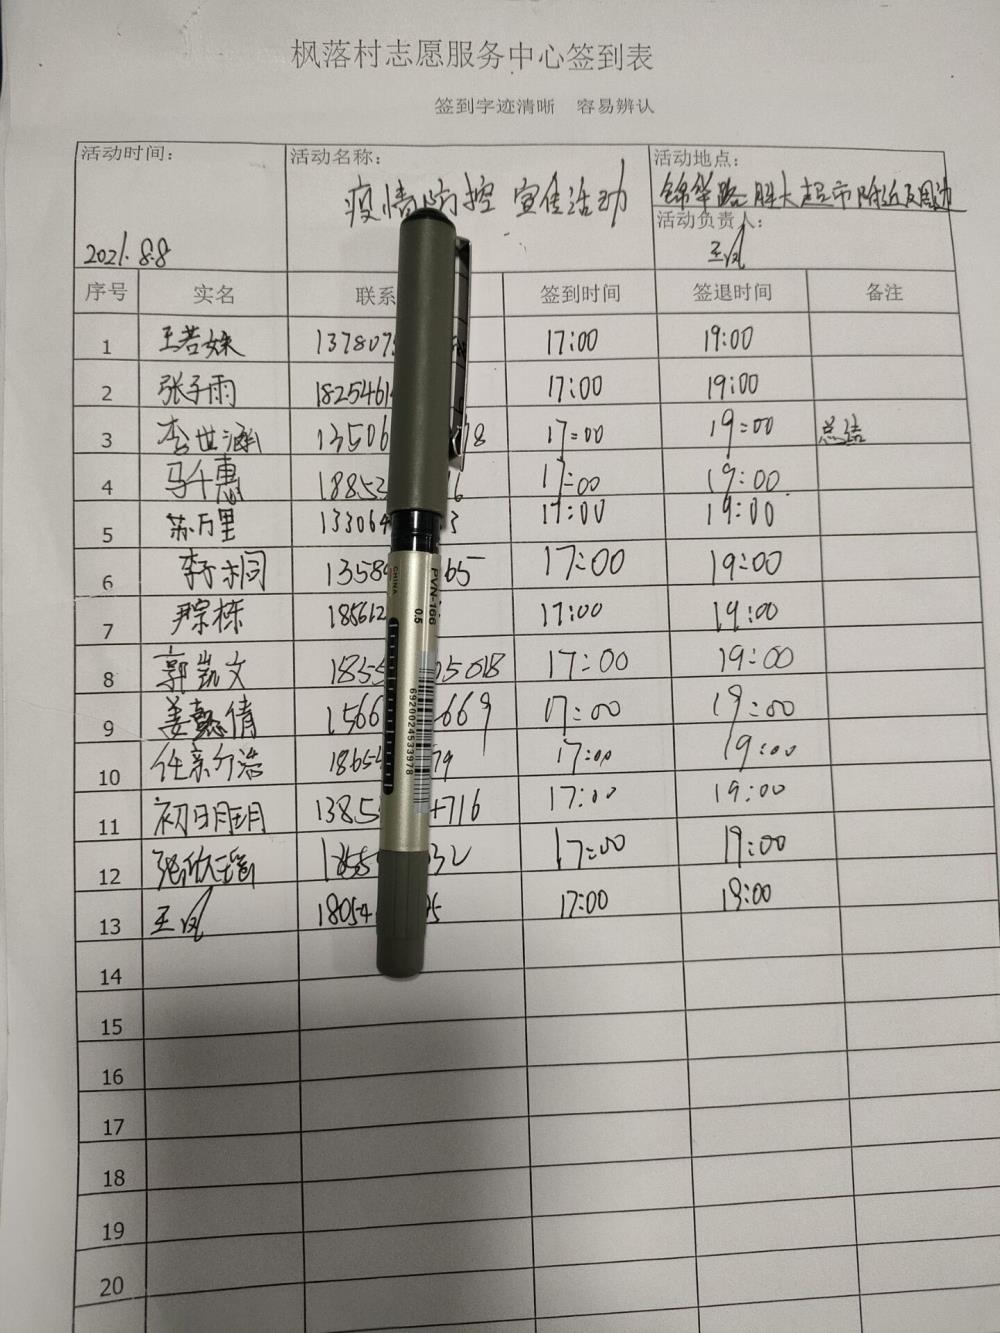 枫落村志愿服务中心签到表
签到字迹清晰 容易辨认
活动时间: 2021.8.8
活动名称: 疫情防控宣传活动
活动地点: 锦华路胜大超市附近及周边
活动负责人: 王凤
序号 实名 联系 签到时间 签退时间 备注
1 王若姝 137807 17:00 19:00
2 张子雨 1825461 17:00 19:00
3 李世涵 13506 78 17:00 19:00 总结
4 马千惠 18853 6 17:00 19:00
5 苏万里 133064 3 17:00 19:00
6 1358 65 17:00 19:00
7 尹宗栋 185612 17:00 19:00
8 郭凯文 1855 05018 17:00 19:00
9 姜懿倩 1566 669 17:00 19:00
10 任亲 浩 1865 79 17:00 19:00
11 初明玥 1385 4716 17:00 19:00
12 张欣瑶 1855 32 17:00 19:00
13 王凤 18054 5 17:00 19:00
14
15
16
17
18
19
20
CHINA
PVN-166
0.5
6920024533978